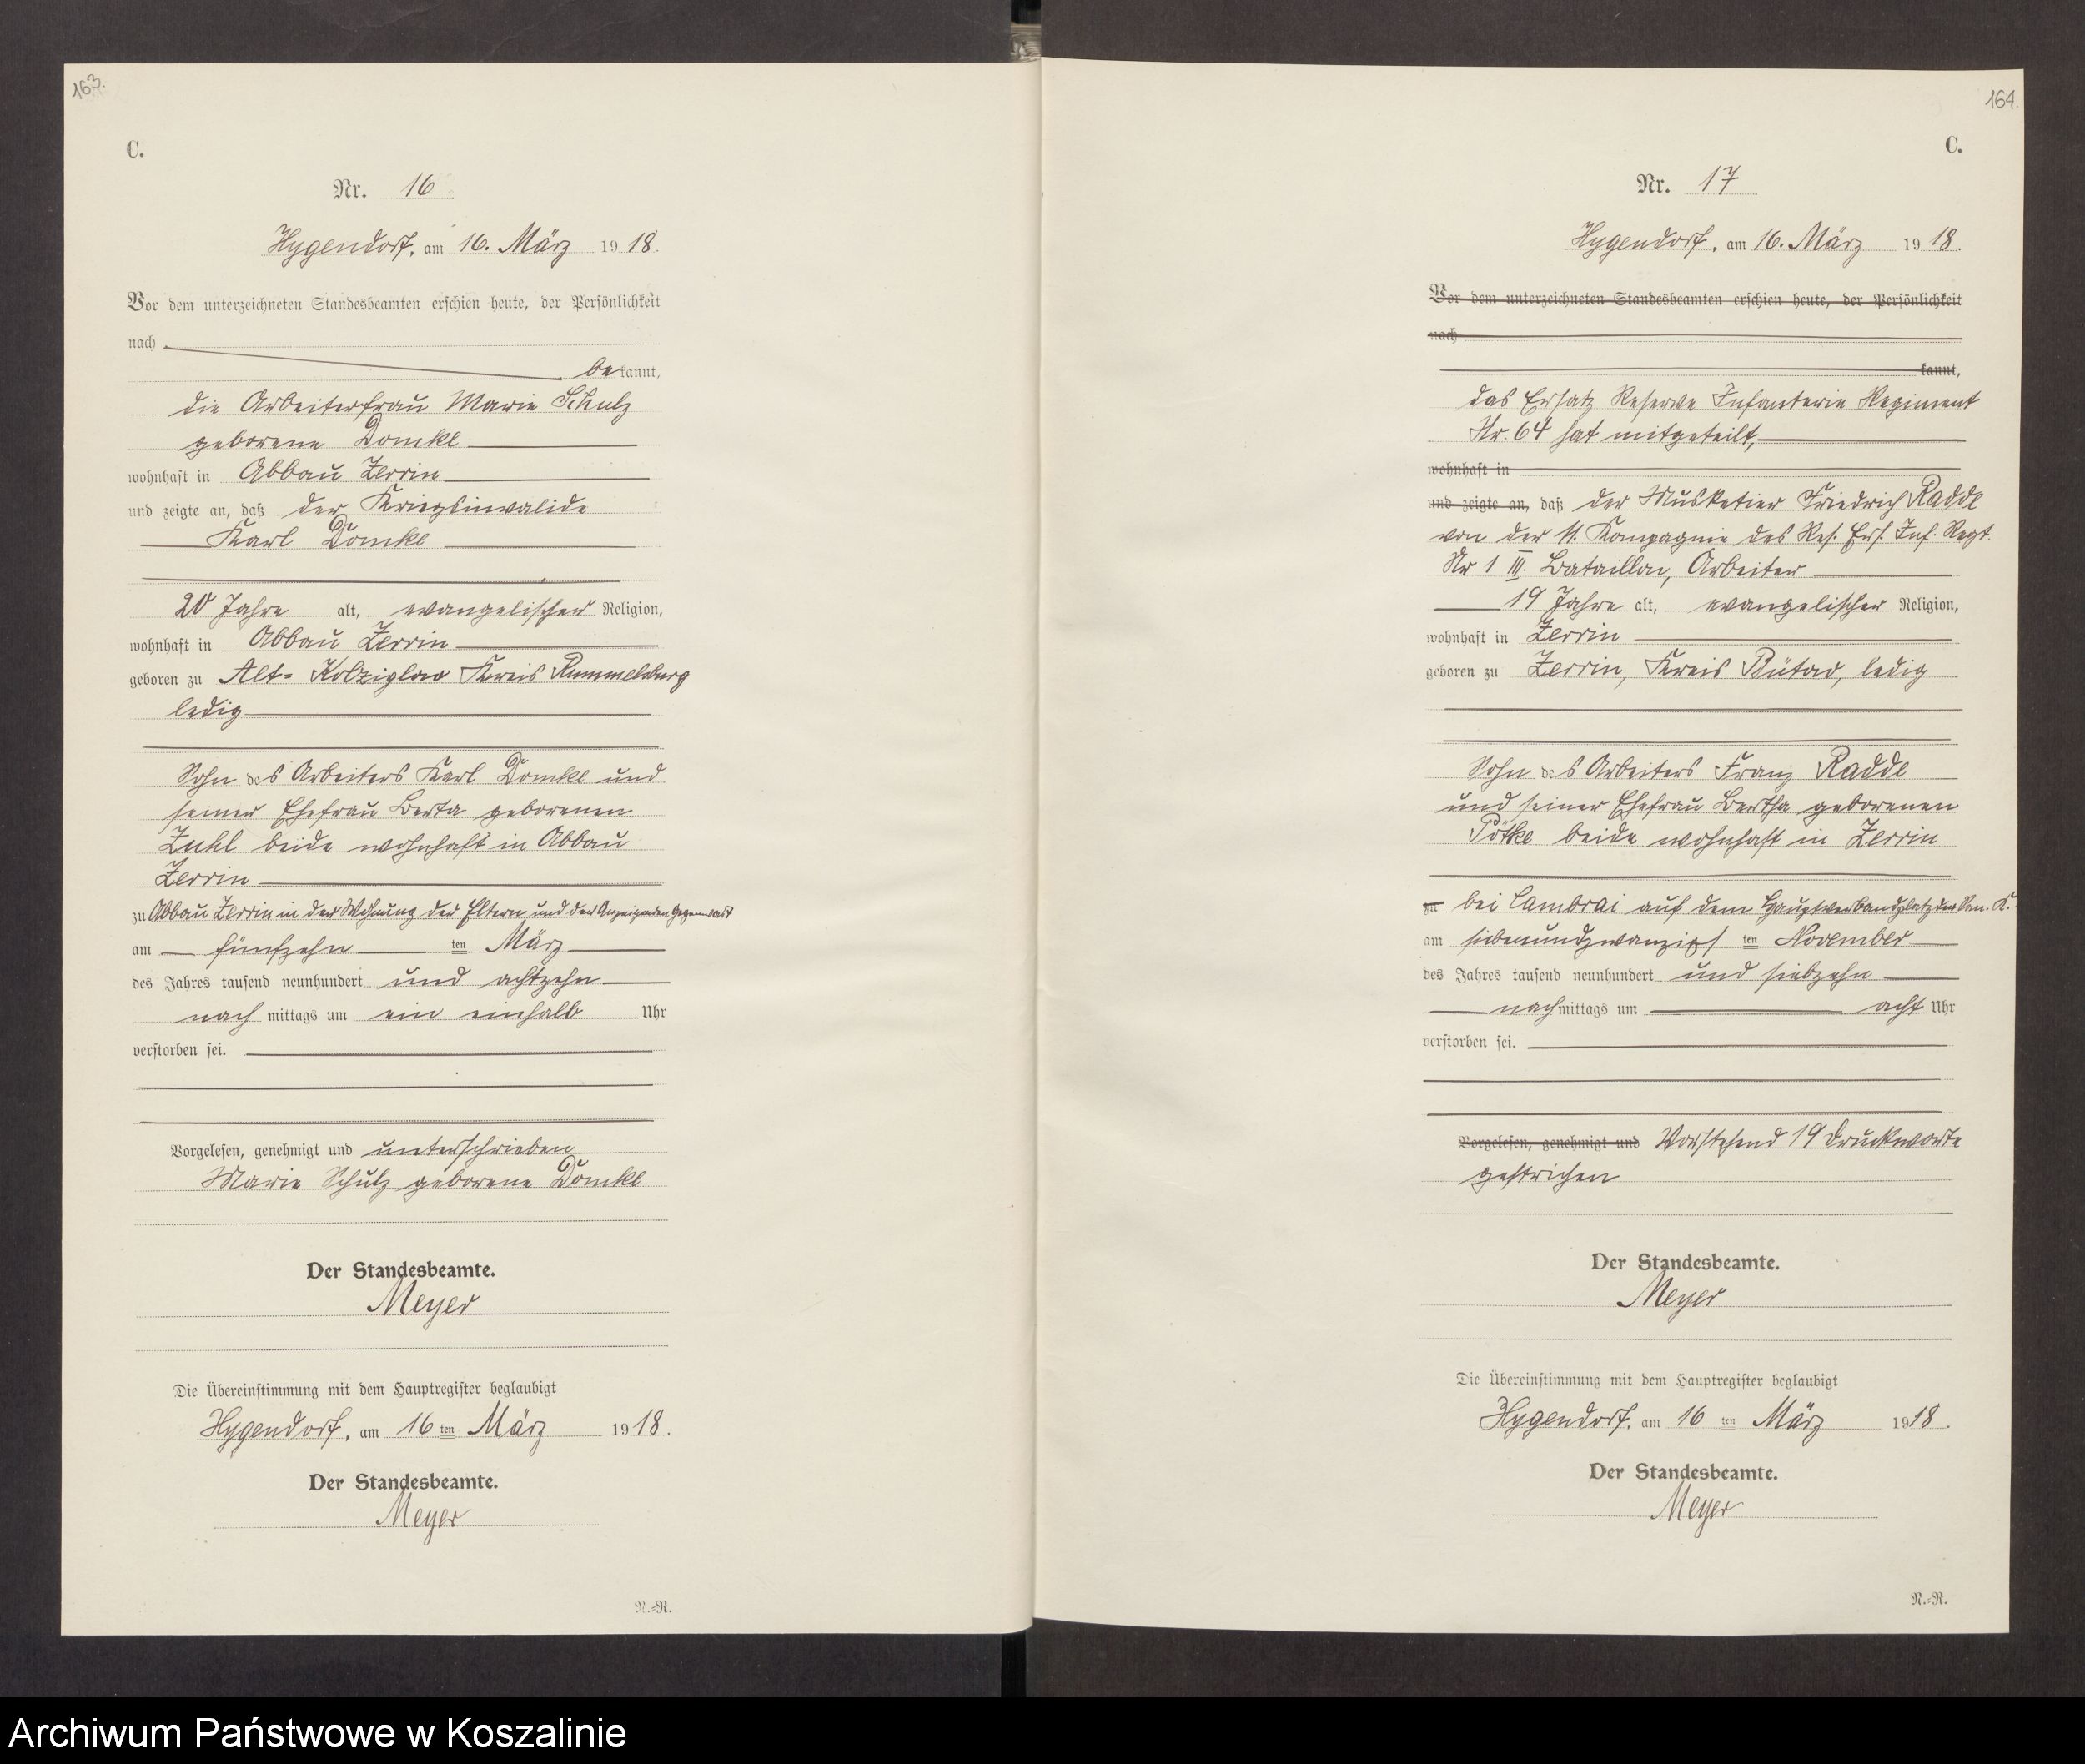 163.
C.
Nr. 16
Hygendorf, am 16. März 1918.
Vor dem unterzeichneten Standesbeamten erschien heute, der Persönlichkeit
nach
bekannt,
die Arbeiterfrau Marie Schulz
geborene Domke
wohnhaft in Abbau Zerrin
und zeigte an, daß der Kriegsinvalide
Karl Domke
20 Jahre alt, evangelischer Religion,
wohnhaft in Abbau Zerrin
geboren zu Alt-Kolziglow Kreis Rummelsburg
ledig
Sohn des Arbeiters Karl Domke und
seiner Ehefrau Berta geborenen
Zuhl beide wohnhaft in Abbau
Zerrin
zu Abbau Zerrin in der Wohnung der Eltern und der Anzeigenden Gegenwart
am fünfzehn ten März
des Jahres tausend neunhundert und achtzehn
nachmittags um ein einhalb Uhr
verstorben sei.
Vorgelesen, genehmigt und unterschrieben
Marie Schulz geborene Domke
Der Standesbeamte.
Meyer
Die Übereinstimmung mit dem Hauptregister beglaubigt
Hygendorf, am 16 ten März 1918.
Der Standesbeamte.
Meyer
N.=R.
164.
C.
Nr. 17
Hygendorf, am 16. März 1918.
Vor dem unterzeichneten Standesbeamten erschien heute, der Persönlichkeit
nach
kannt,
das Ersatz Reserve Infanterie Regiment
Nr. 64 hat mitgeteilt,
wohnhaft in
und zeigte an, daß der Musketier Friedrich Radde
von der 11. Kompagnie des Res. Ers. Inf. Regt.
Nr 1 III. Bataillon, Arbeiter
19 Jahre alt, evangelischer Religion,
wohnhaft in Zerrin
geboren zu Zerrin, Kreis Bütow, ledig
Sohn des Arbeiters Franz Radde
und seiner Ehefrau Bertha geborenen
Pötke beide wohnhaft in Zerrin
zu bei Cambrai auf dem Hauptverbandplatz der San. K.
am siebenundzwanzigst ten November
des Jahres tausend neunhundert und siebzehn
nachmittags um acht Uhr
verstorben sei.
Vorgelesen, genehmigt und Vorstehend 19 Druckworte
gestrichen
Der Standesbeamte.
Meyer
Die Übereinstimmung mit dem Hauptregister beglaubigt
Hygendorf, am 16 ten März 1918.
Der Standesbeamte.
Meyer
N.=R.
Archiwum Państwowe w Koszalinie